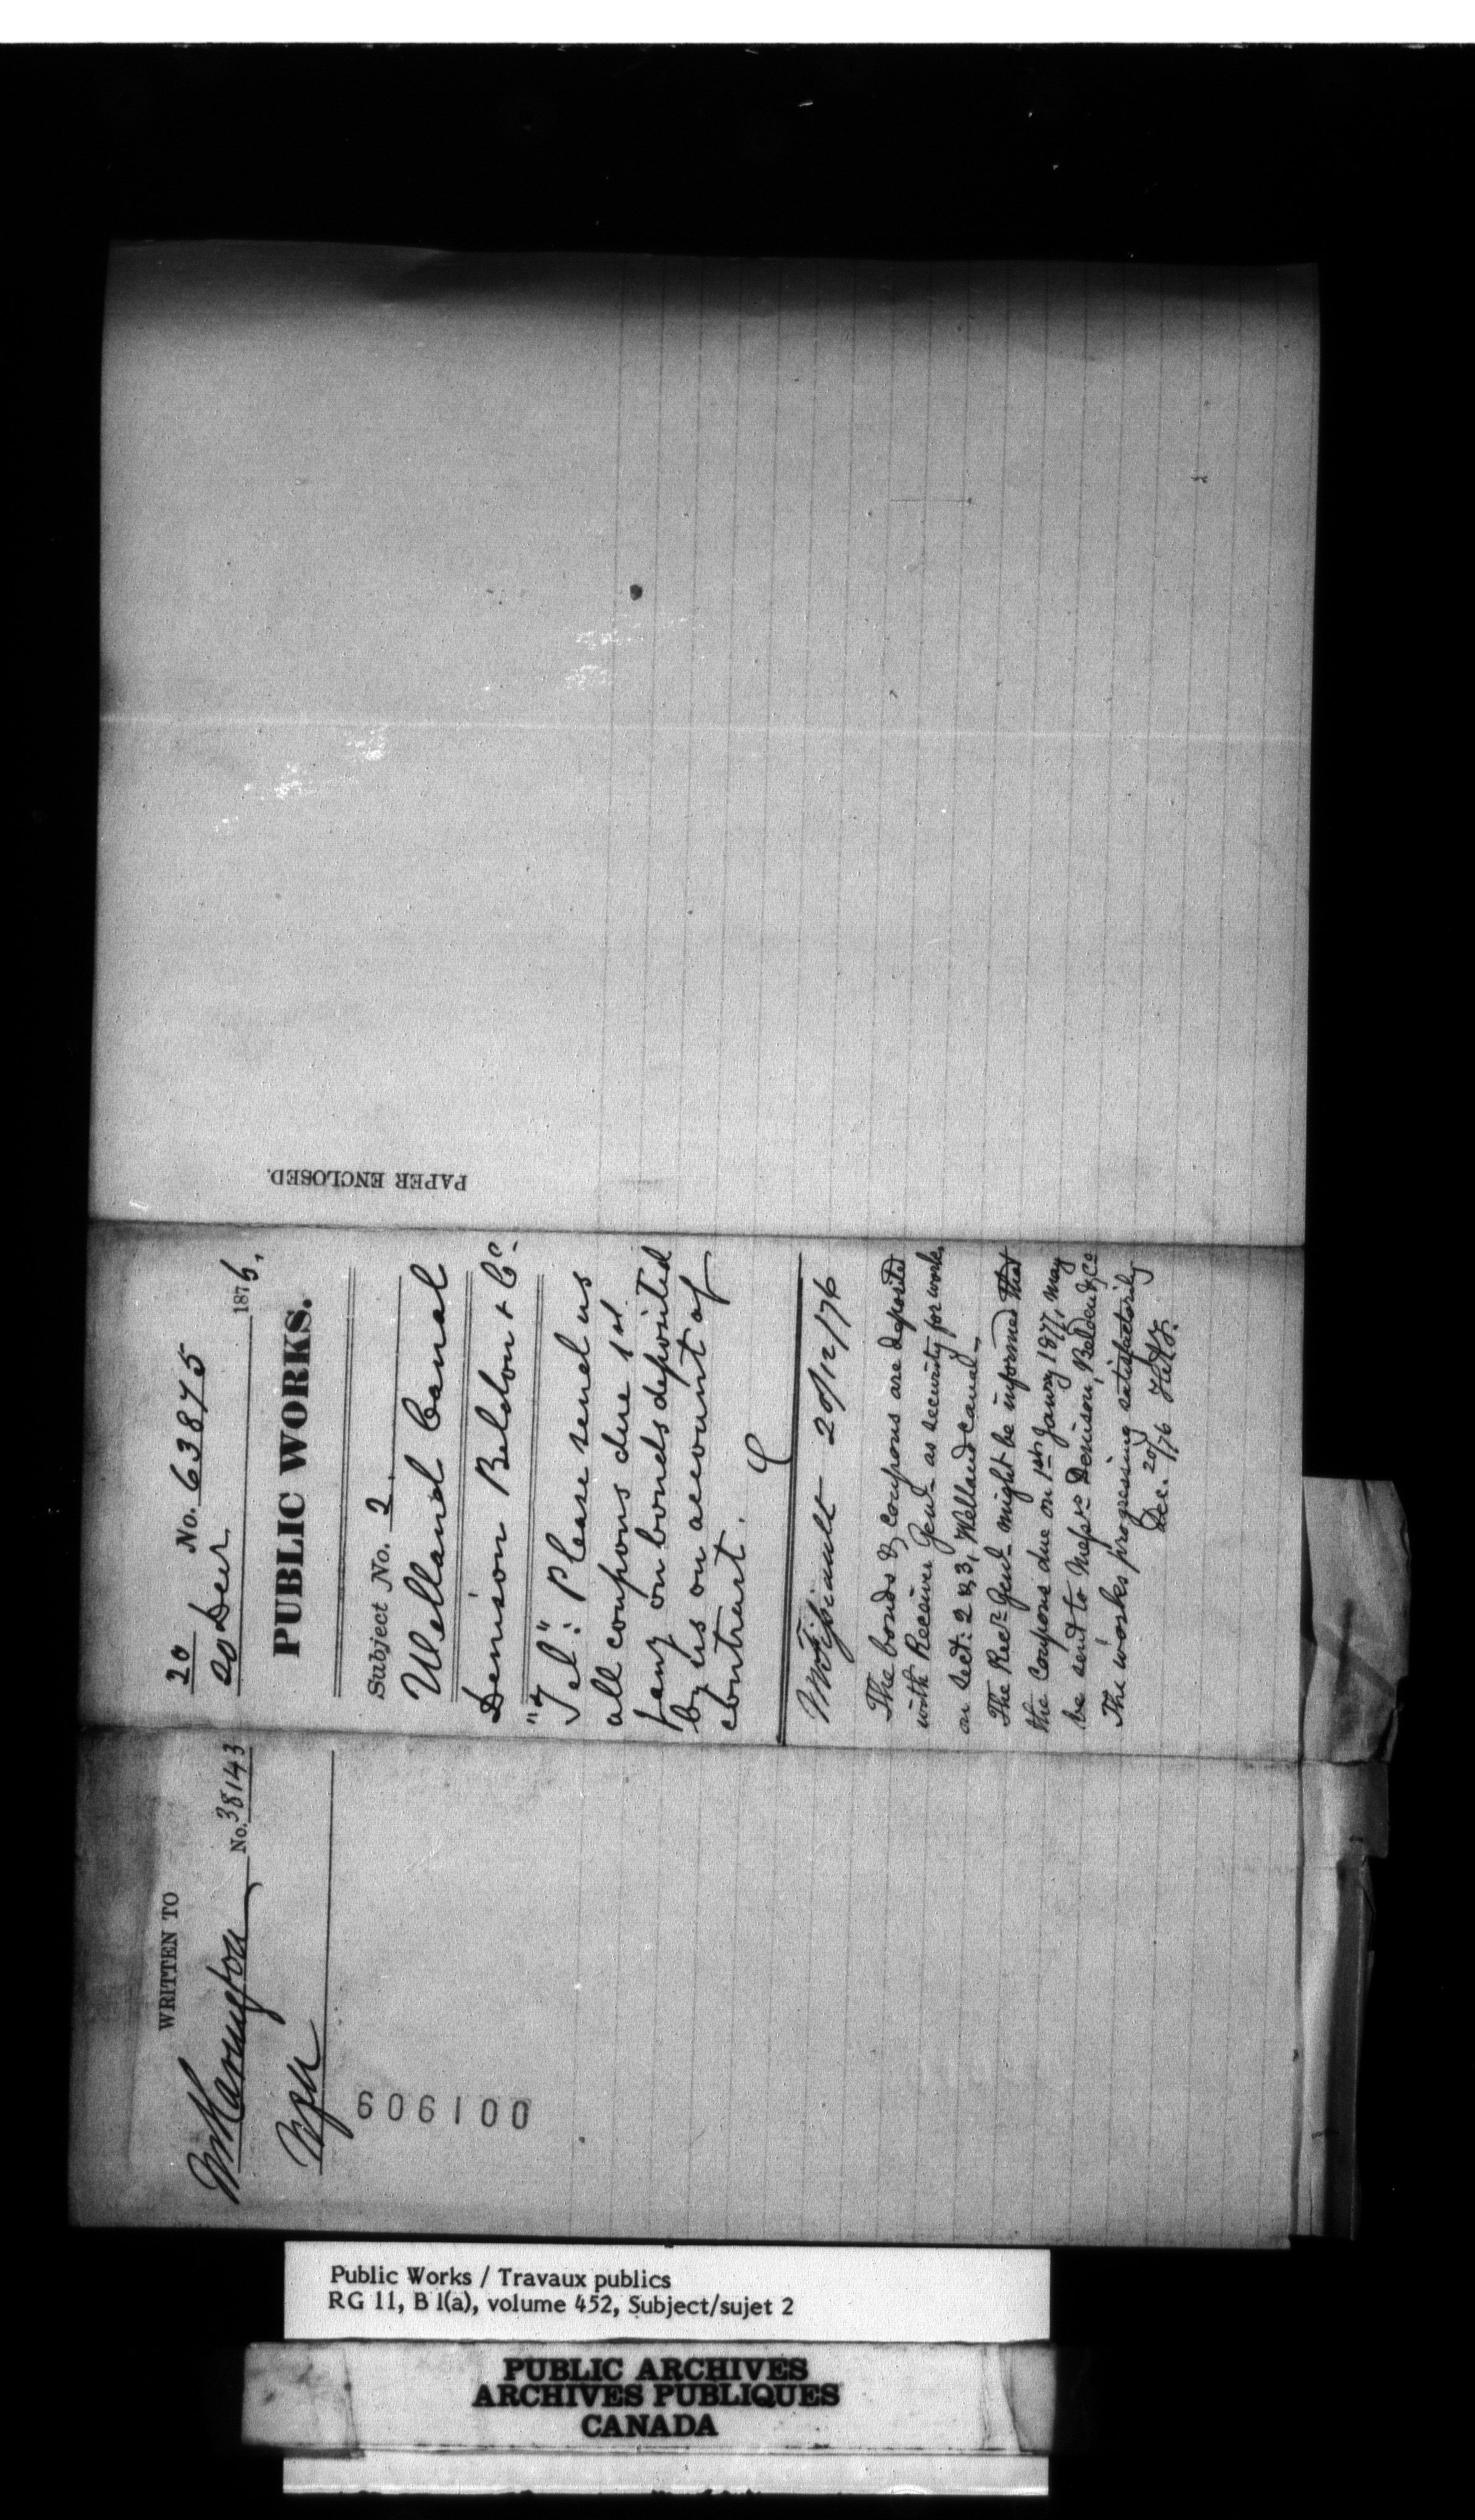 WRITTEN TO
No. 38143
001909
20 No. 63875
20 Decr 1876,
PUBLIC WORKS.
Subject No. 2.
Welland Canal
Denison Beldon & Co.
"Tel": Please send us
all coupons due 1st
Jany on bonds deposited
by us on account of
contract.
20/12/76
The bonds & coupons are deposited
with Receiver Genl. as security for works
on Sect: 2 & 3, Welland Canal.
The Recr. Genl. might be informed that
the coupons due on 1st Janry 1877, may
be sent to Messrs Denison, Belden & Co
The works progressing satisfactorily
Dec. 20/76
PAPER ENCLOSED.
Public Works / Travaux publics
RG 11, B 1(a), volume 452, Subject/sujet 2
PUBLIC ARCHIVES
ARCHIVES PUBLIQUES
CANADA